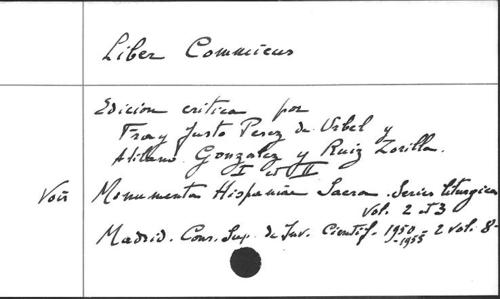 Liber Commicus
Edicion critica por
Fray Justo Perez de Urbel y
Atilano Gonzalez y Ruiz Zorilla.
I et II
Voir Monumenta Hispaniae Sacra. Series liturgica
Vol. 2 et 3
Madrid. Cons. Sup. de Inv. Cientif. 1950-1955 - 2 vol. 8-